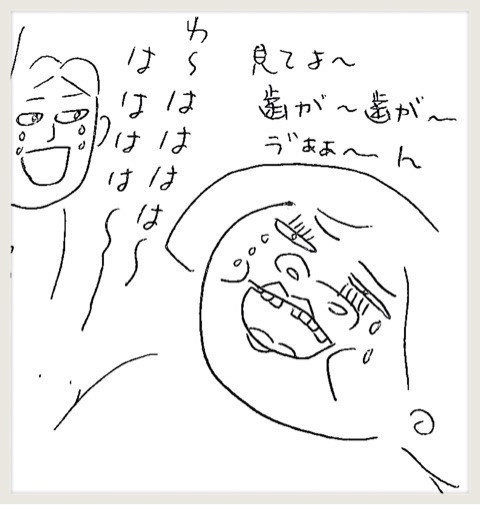 見てよ〜
歯が〜歯が〜
ゔぁぁ〜ん
わ〜はははは〜
はははは〜